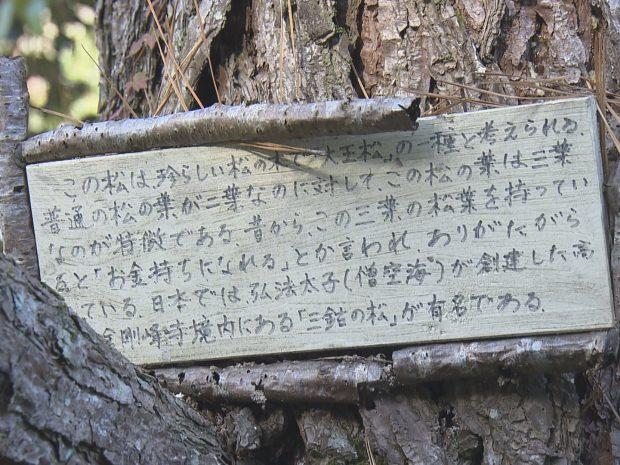 この松は、珍らしい松の木で「大王松」の一種と考えられる、
普通の松の葉が二葉なのに対して、この松の葉は三葉
なのが特徴である、昔から、この三葉の松葉を持ってい
ると「お金持ちになれる」とか言われ、ありがたがら
ている、日本では、弘法太子(僧空海)が創建した高
金剛峰寺境内にある「三鈷の松」が有名である、